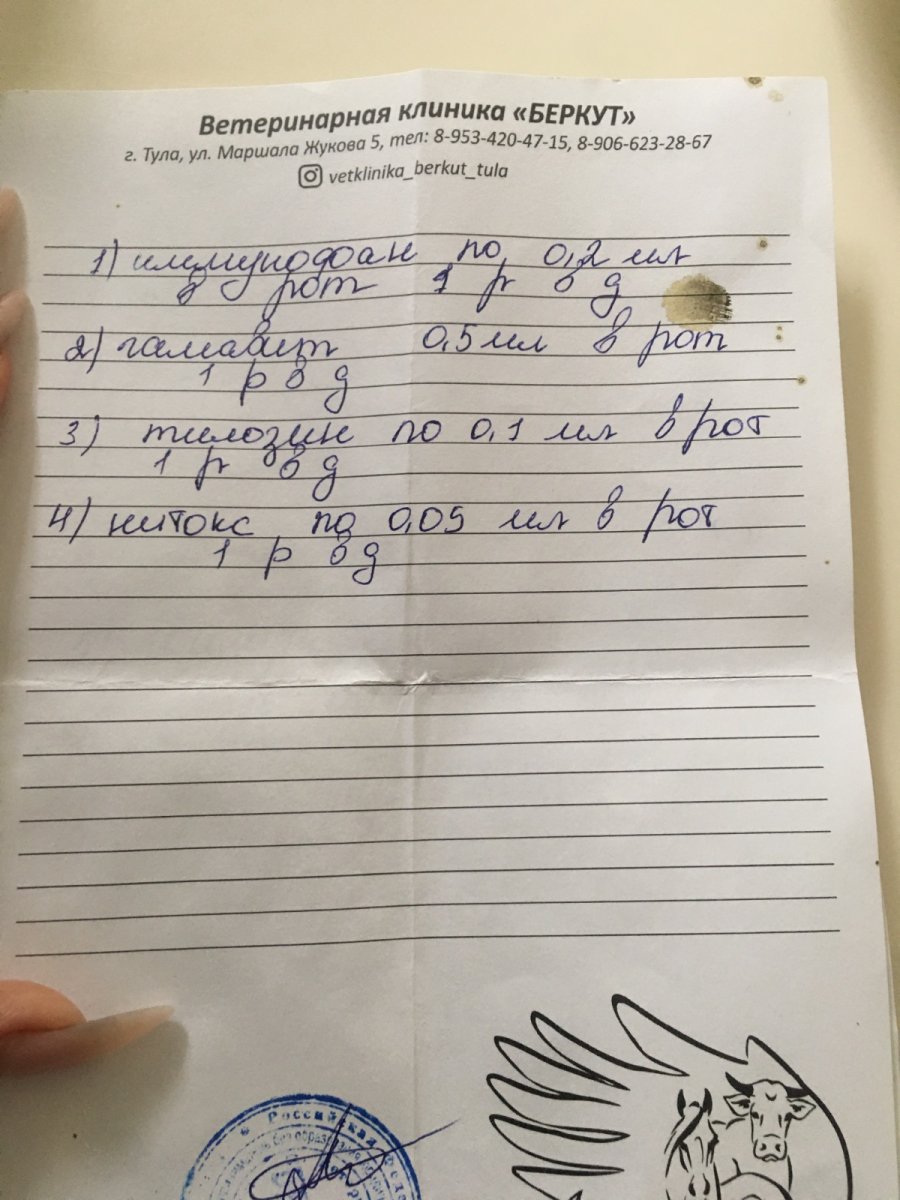 Ветеринарная клиника «БЕРКУТ»
г. Тула, ул. Маршала Жукова 5, тел: 8-953-420-47-15, 8-906-623-28-67
vetklinika_berkut_tula
1) иммунофан по 0,2 мл
в рот 1 р в д
2) гамавит 0,5 мл в рот
1 р в д
3) тилозин по 0,1 мл в рот
1 р в д
4) нитокс по 0,05 мл в рот
1 р в д
Российская